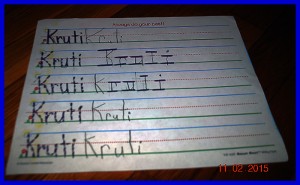 Kruti Kruti
Kruti Kruti
Kruti Kruti
Kruti Kruti
Kruti Kruti
11 02 2015